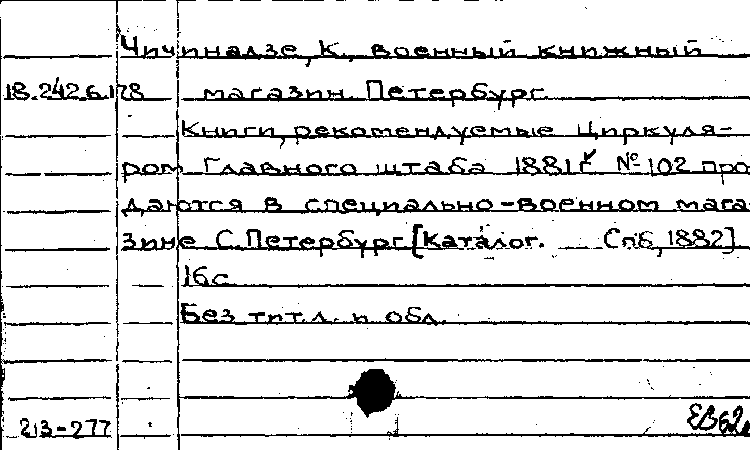 Чичинадзе, К, военный книжный
18.242.6.178 магазин Петербург
Книги, рекомендуемые Циркуля-
ром Главного штаба 1881г № 102 про
даются в специально-военном мага
зине С.Петербург [Каталог. Спб, 1882]
16с
Без тит.л. и обл.
213-277